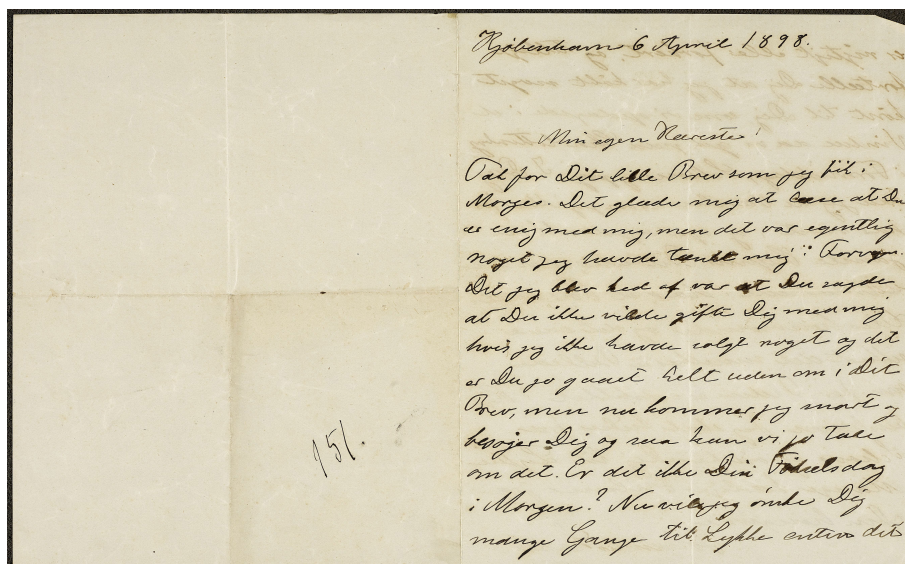 Kjøbenhavn 6 April 1898.
Min egen Kæreste!
Tak for Dit lille Brev som jeg fik i
Morges. Det glæde mig at læse at Du
er enig med mig, men det var egentlig
noget jeg havde tænkt mig i Forvejen.
Det jeg blev ked af var at Du sagde
at Du ikke vilde gifte Dig med mig
hvis jeg ikke havde solgt noget og det
er Du jo gaaet helt uden om i Dit
Brev, men nu kommer jeg snart og
besøger Dig og saa kan vi jo tale
om det. Er det ikke Din Fødselsdag
i Morgen? Nu vil jeg ønske Dig
mange Gange til Lykke enten det
151.